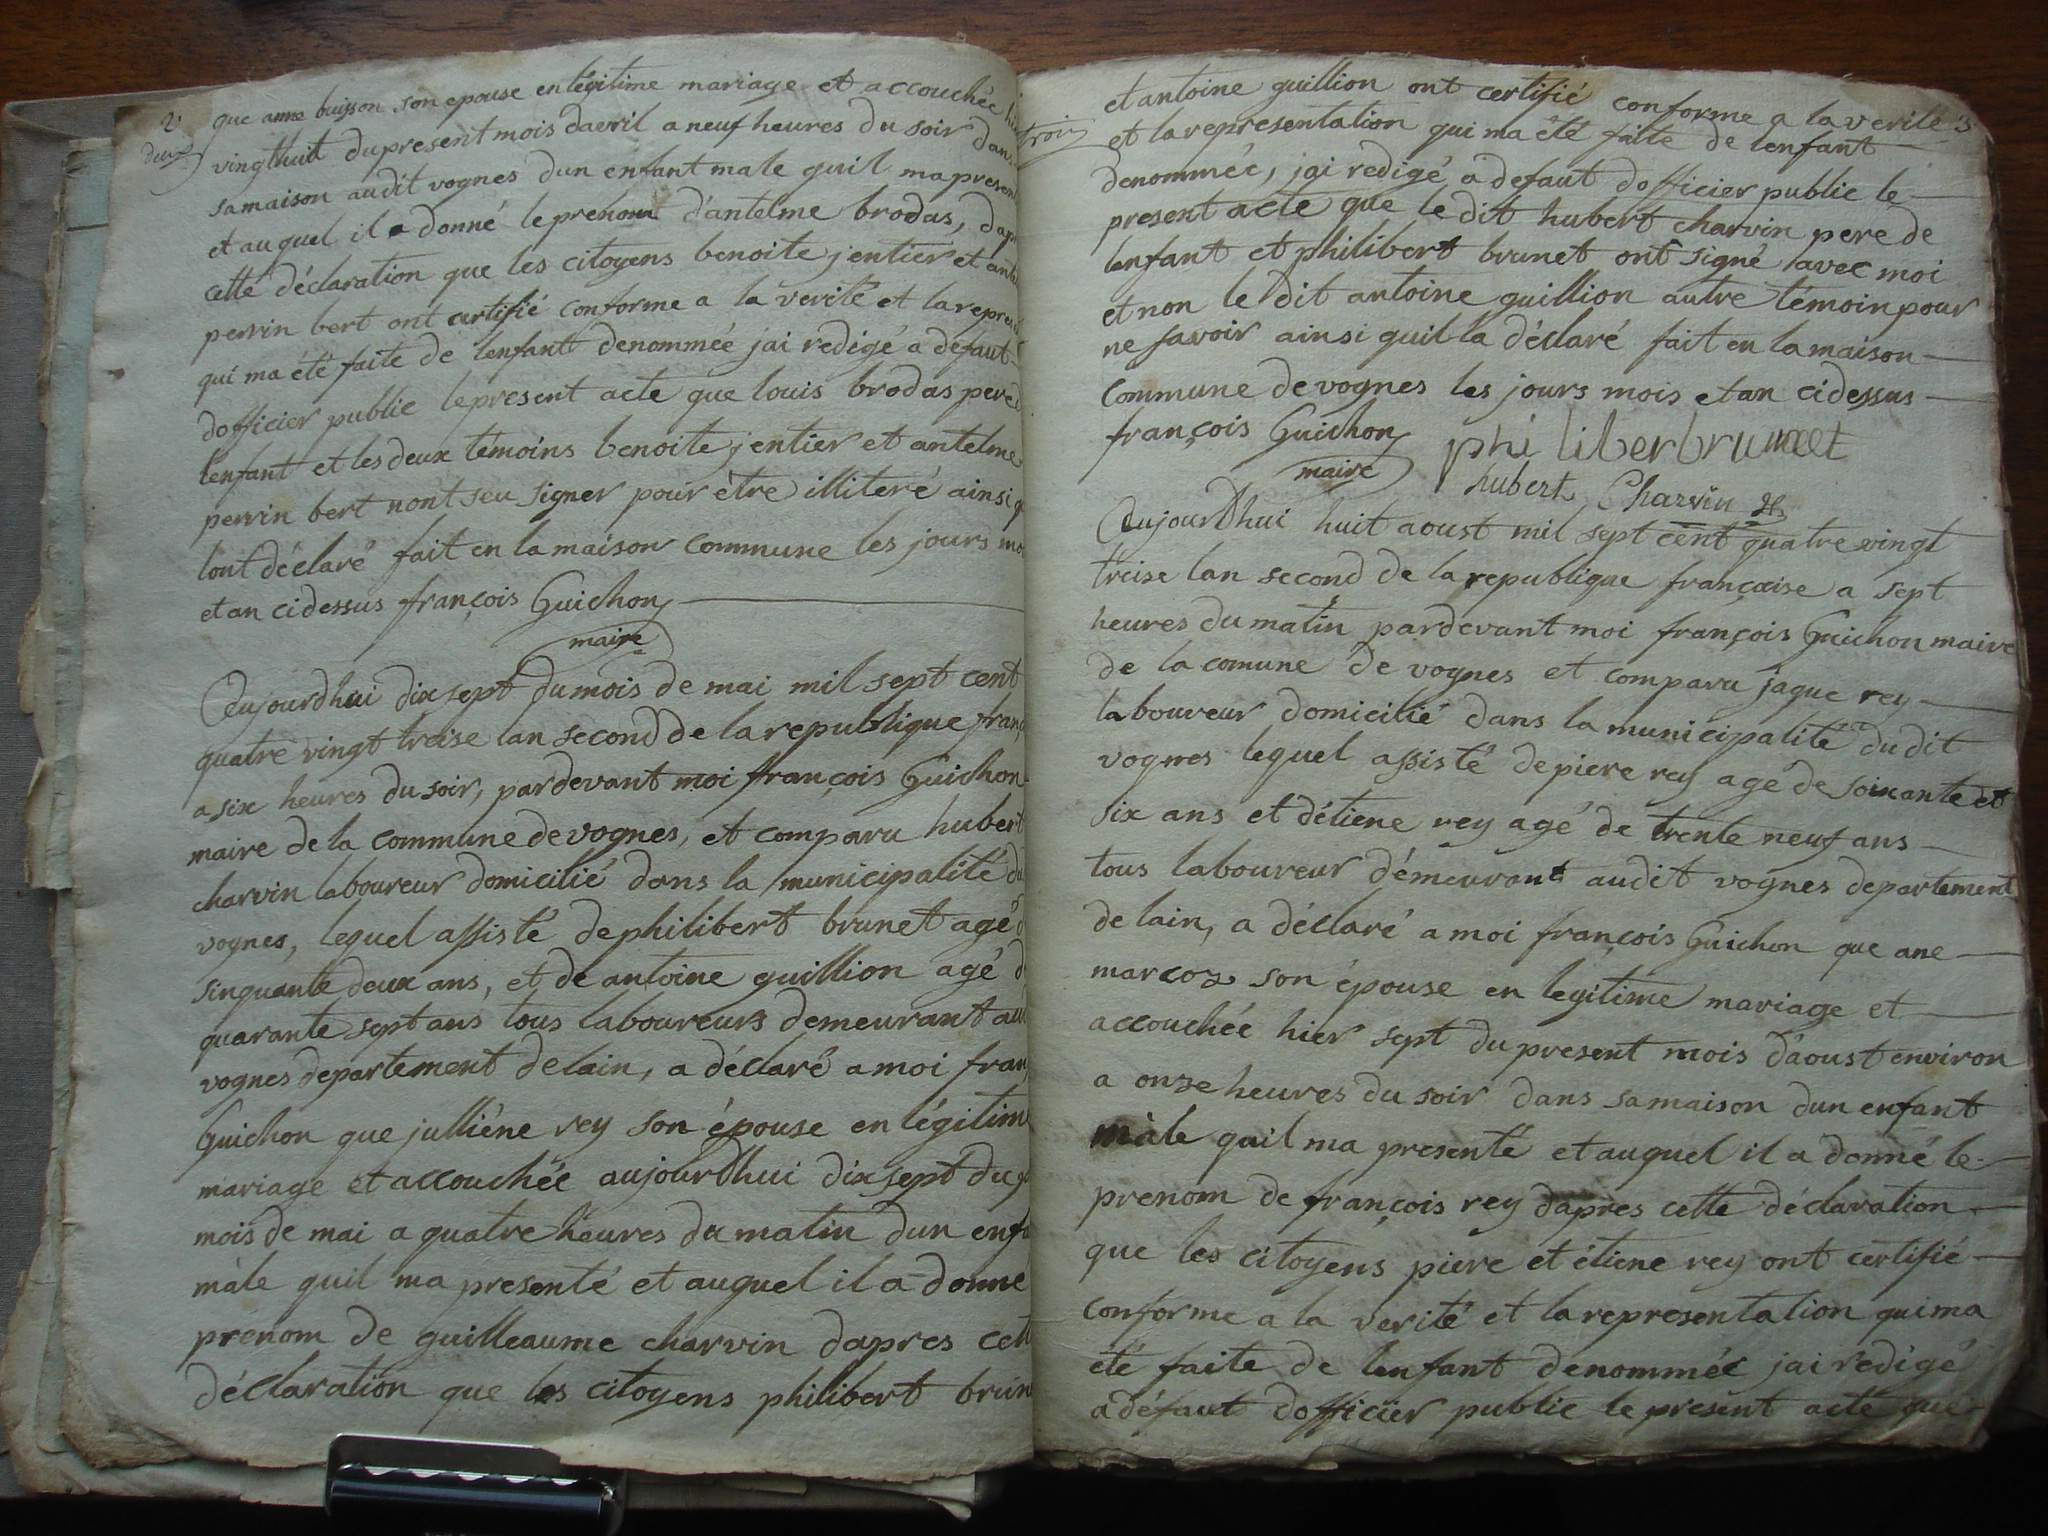 2
deux
que anne buisson son epouse en légitime mariage et accouchée
vingt huit du present mois davril a neuf heures du soir dans
sa maison audit vognes dun enfant male quil ma present
et auquel il a donné le prenom d'antelme brodas, dapr
cette déclaration que les citoyens benoite jentier et ante
perrin bert ont certifié conforme a la verité et la repres
qui ma été faite de lenfant denommée jai redigé a defaut
dofficier public le present acte que louis brodas pere d
lenfant et les deux témoins benoite jentier et antelme
perrin bert nont seu signer pour être illiteré ainsi q
lont déclaré fait en la maison commune les jours mo
et an cidessus françois Guichon
maire
Aujourdhui dix sept du mois de mai mil sept cent
quatre vingt treise lan second de la republique franç
a six heures du soir, pardevant moi françois Guichon
maire de la commune de vognes, et comparu hubert
charvin laboureur domicilié dans la municipalité d
vognes, lequel assisté de philibert brunet agé d
sinquante deux ans, et de antoine guillion agé d
quarante sept ans tous laboureurs demeurant au
vognes departement de lain, a déclaré a moi fran
Guichon que julliéne rey son épouse en légitim
mariage et accouchée aujourdhui dix sept du p
mois de mai a quatre heures du matin dun enfa
mâle quil ma presenté et auquel il a donné
prenom de guilleaume charvin dapres cett
déclaration que les citoyens philibert brun
trois
3
et antoine guillion ont certifié conforme a la verité
et la representation qui ma été faite de lenfant
denommée, jai redigé a defaut dofficier public le
present acte que le dit hubert charvin pere de
lenfant et philibert brunet ont signé avec moi
et non le dit antoine guillion autre témoin pour
ne savoir ainsi quil la déclaré fait en la maison
commune de vognes les jours mois et an cidessus
françois Guichon
maire
phi liber brunet
hubert Charvin
Aujourdhui huit aoust mil sept cent quatre vingt
treise lan second de la republique françoise a sept
heures du matin pardevant moi françois Guichon maire
de la comune de vognes et comparu jaque rey
laboureur domicilié dans la municipalité du dit
vognes lequel assisté de piere rey agé de soixante et
six ans et détiene rey agé de trente neuf ans
tous laboureur démeurant audit vognes departement
de lain, a déclaré a moi françois Guichon que ane
marcoz son épouse en legitime mariage et
accouchée hier sept du present mois d'aoust environ
a onze heures du soir dans sa maison dun enfant
mâle quil ma presenté et auquel il a donné le
prenom de françois rey dapres cette déclaration
que les citoyens piere et étiene rey ont certifié
conforme a la verité et la representation qui ma
été faite de lenfant denommée jai redigé
a défaut dofficier public le present acte que